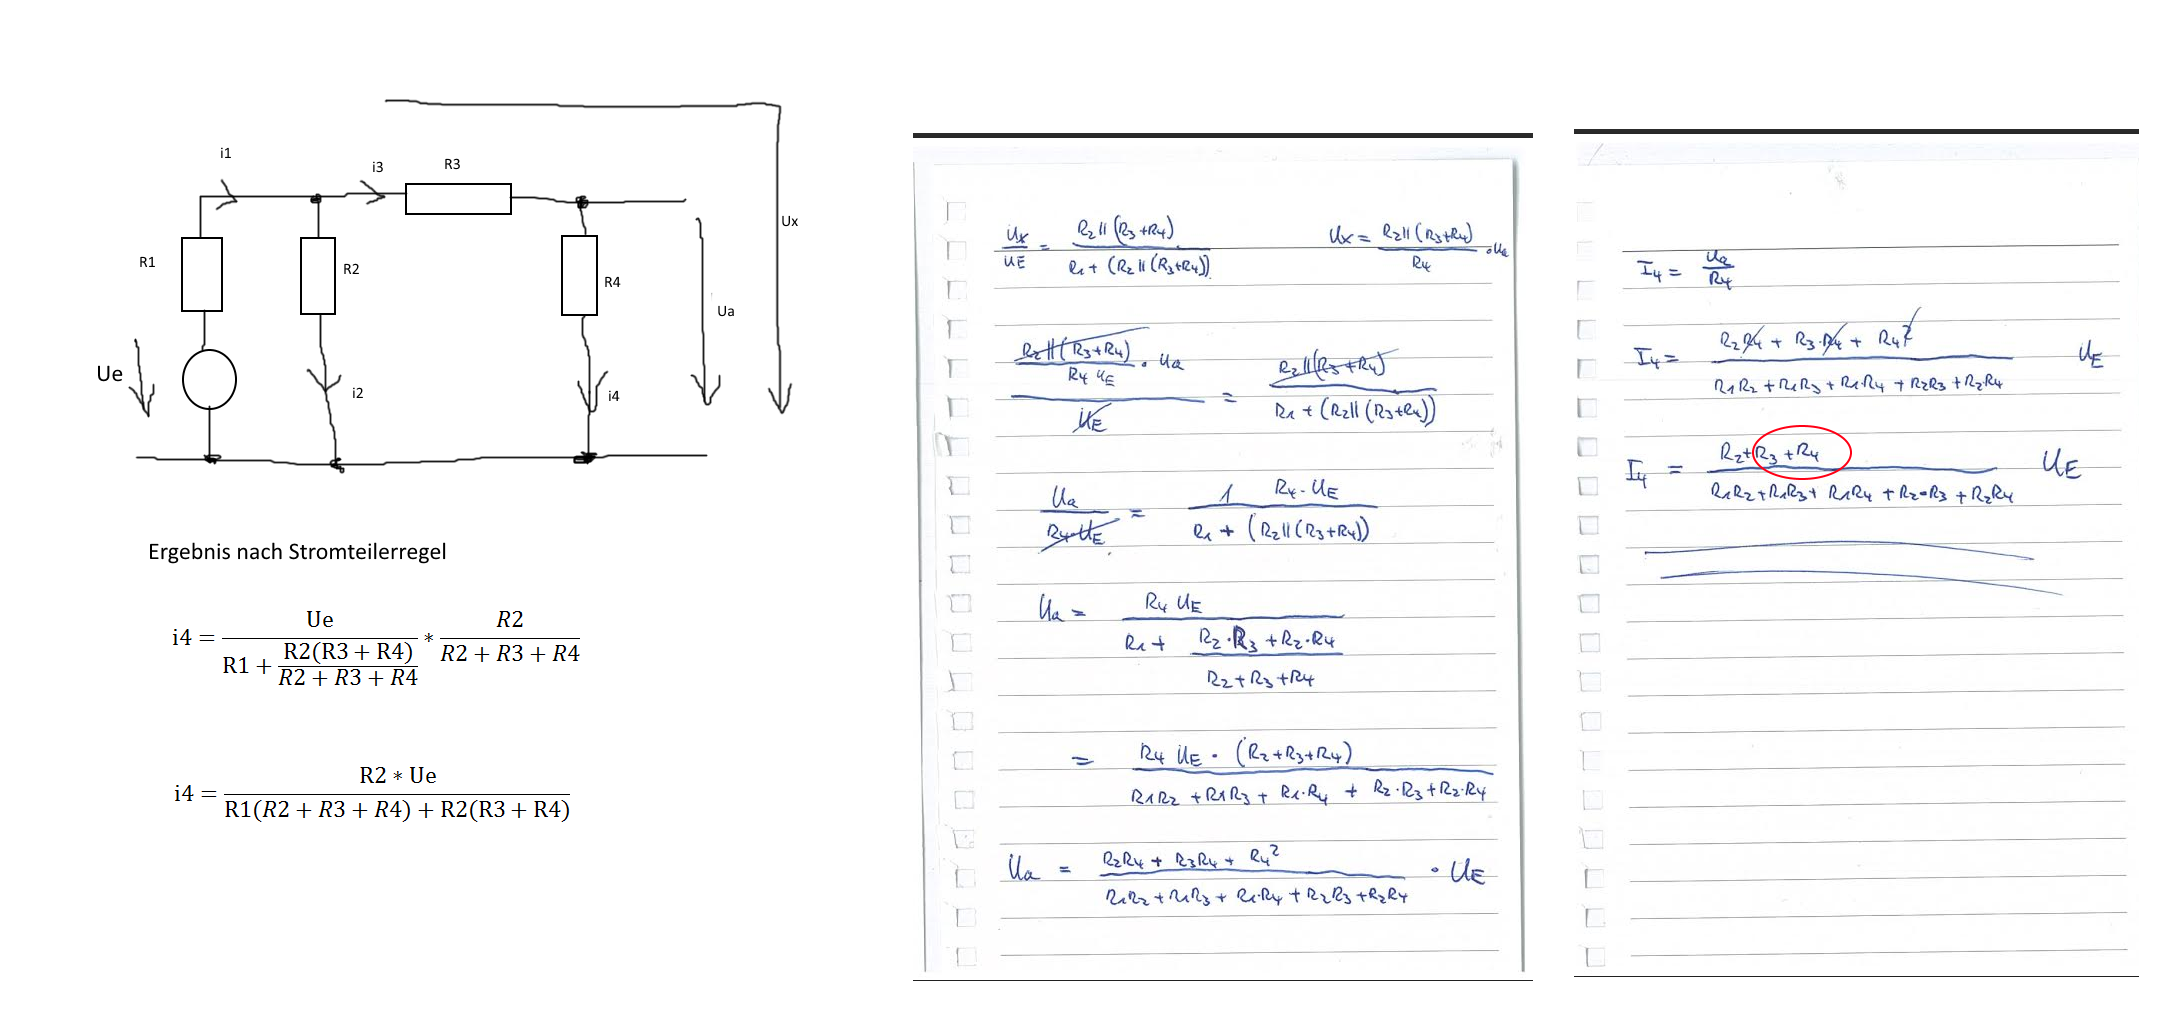 i1
i3
R3
Ux
R1
R2
R4
Ua
Ue
i2
i4
Ergebnis nach Stromteilerregel
i4 = Ue / (R1 + R2(R3 + R4) / (R2 + R3 + R4)) * R2 / (R2 + R3 + R4)
i4 = R2 * Ue / (R1(R2 + R3 + R4) + R2(R3 + R4))
Ux / UE = R2 || (R3 + R4) / (R1 + (R2 || (R3+R4)))
Ux = R2 || (R3+R4) / R4 · Ua
(R2 || (R3+R4) / (R4 UE) · Ua) / UE = R2 || (R3+R4) / (R1 + (R2 || (R3+R4)))
Ua / (R4·UE) = 1 R4·UE / (R1 + (R2 || (R3+R4)))
Ua = R4 UE / (R1 + (R2·R3 + R2·R4) / (R2+R3+R4))
= R4 UE · (R2+R3+R4) / (R1R2 + R1R3 + R1·R4 + R2·R3 + R2·R4)
Ua = (R2R4 + R3R4 + R4²) / (R1R2 + R1R3 + R1·R4 + R2R3 + R2R4) · UE
I4 = Ua / R4
I4 = (R2R4 + R3·R4 + R4²) / (R1R2 + R1R3 + R1·R4 + R2R3 + R2·R4) UE
I4 = (R2+R3+R4) / (R1R2 + R1R3 + R1R4 + R2·R3 + R2R4) UE